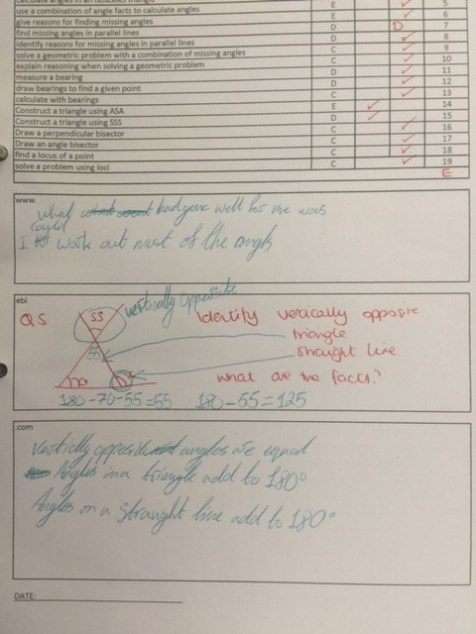 use a combination of angle facts to calculate angles E 6
give reasons for finding missing angles E
find missing angles in parallel lines D D 7
identify reasons for missing angles in parallel lines D 8
solve a geometric problem with a combination of missing angles C 9
explain reasoning when solving a geometric problem C 10
measure a bearing D 11
draw bearings to find a given point C 12
calculate with bearings C 13
Construct a triangle using ASA E 14
Construct a triangle using SSS D 15
Draw a perpendicular bisector C 16
Draw an angle bisector C 17
find a locus of a point C 18
solve a problem using loci C 19
E
www.
What had gone well for me was
I could work out most of the angls
ebi
Q5 55 vertically opposite Identify vertically opposite
triangle
55 straight line
70 what are the facts?
180-70-55=55 180-55=125
.com
angles are equal
Angles in a triangle add to 180°
Angles on a straught line add to 180°
DATE: